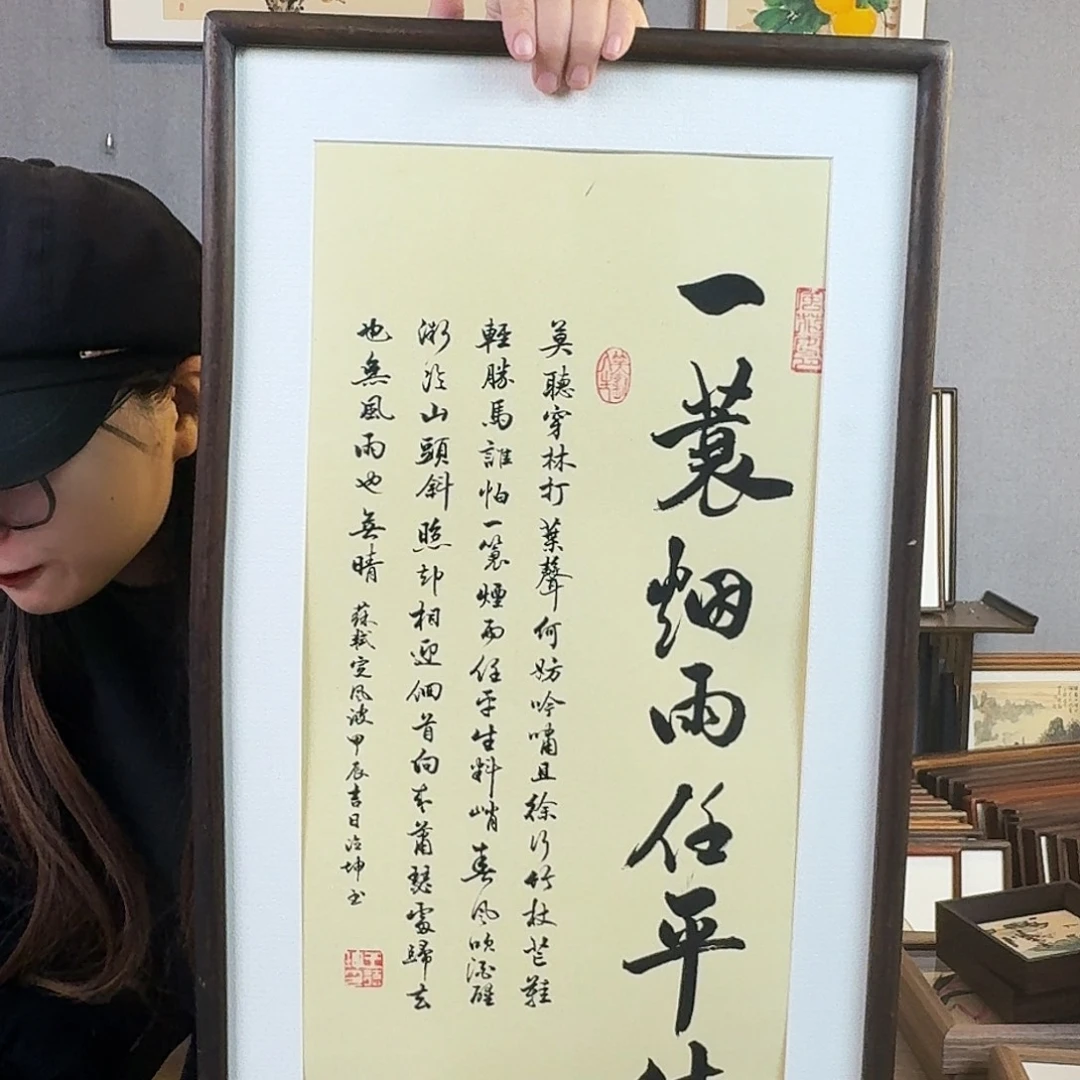 一蓑烟雨任平生
莫聽穿林打葉聲何妨吟嘯且徐行竹杖芒鞋
輕勝馬誰怕一蓑煙雨任平生料峭春風吹酒醒
微冷山頭斜照却相迎回首向來蕭瑟處歸去
也無風雨也無晴 蘇軾定風波甲辰吉日治坤书